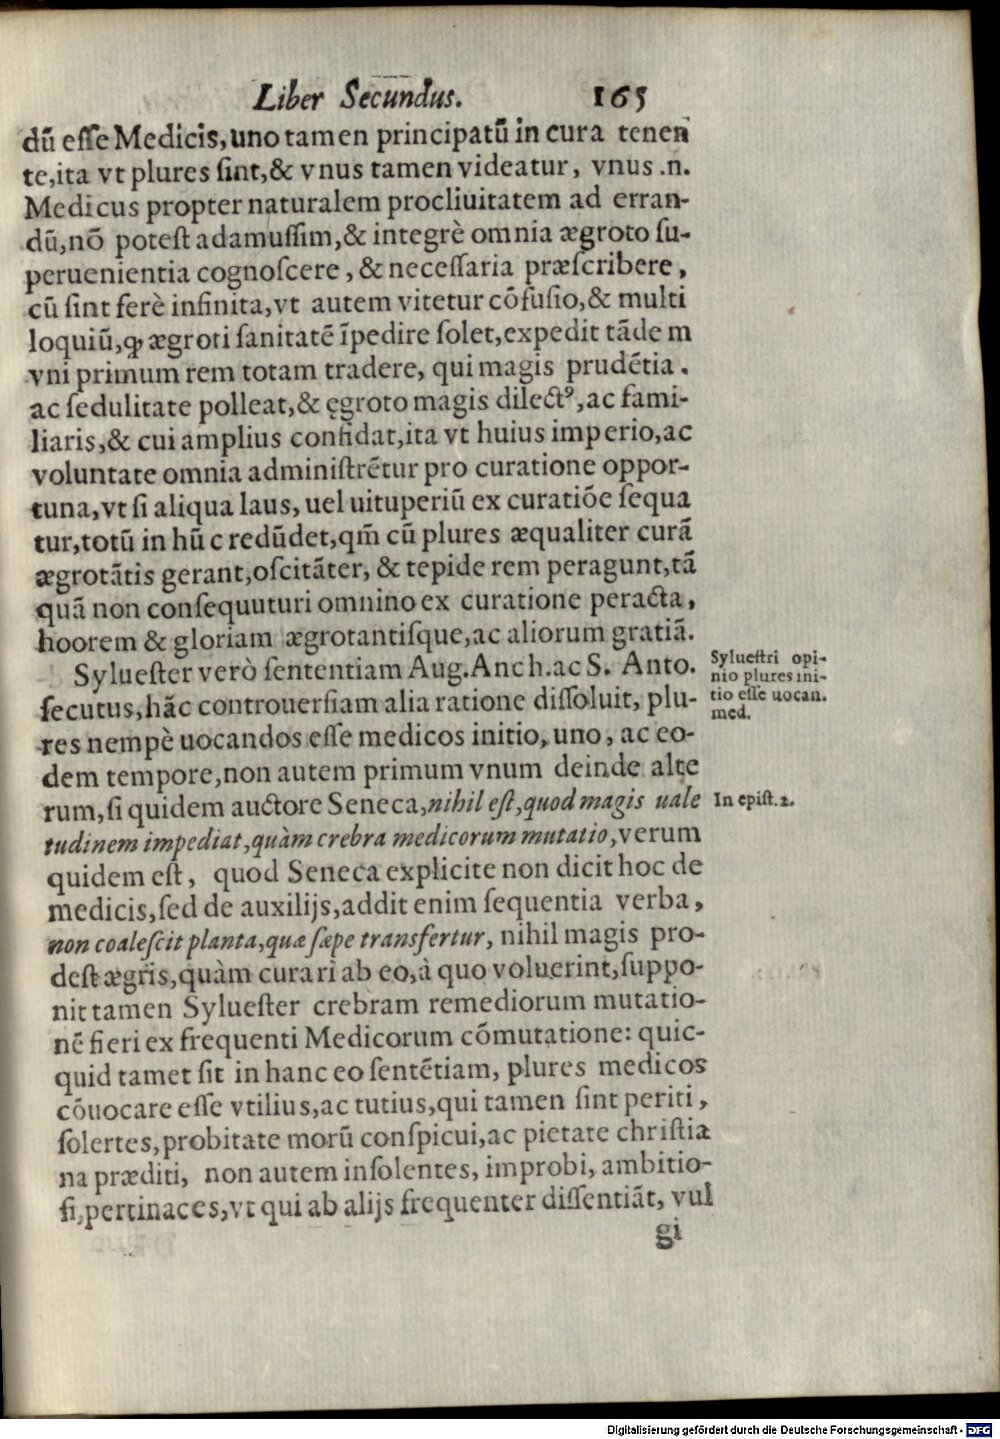 Liber Secundus. 165
dū eſſe Medicis, uno tamen principatū in cura tenen
te, ita vt plures ſint, & vnus tamen videatur, vnus .n.
Medicus propter naturalem procliuitatem ad erran-
dū, nō poteſt adamuſſim, & integrè omnia ægroto ſu-
peruenientia cognoſcere, & neceſſaria præſcribere,
cū ſint ferè infinita, vt autem vitetur cōfuſio, & multi
loquiū, ꝙ ægroti ſanitatē īpedire ſolet, expedit tāde m
vni primum rem totam tradere, qui magis prudētia.
ac ſedulitate polleat, & ęgroto magis dilectꝰ, ac fami-
liaris, & cui amplius confidat, ita vt huius imperio, ac
voluntate omnia adminiſtrētur pro curatione oppor-
tuna, vt ſi aliqua laus, uel uituperiū ex curatiōe ſequa
tur, totū in hūc redūdet, qm̄ cū plures æqualiter curā
ægrotātis gerant, oſcitāter, & tepide rem peragunt, tā
quā non conſequuturi omnino ex curatione peracta,
hoorem & gloriam ægrotantiſque, ac aliorum gratiā.
Sylueſter verò ſententiam Aug. Anch. ac S. Anto.
ſecutus, hāc controuerſiam alia ratione diſſoluit, plu-
res nempè uocandos eſſe medicos initio, uno, ac eo-
dem tempore, non autem primum vnum deinde alte
rum, ſi quidem auctore Seneca, nihil eſt, quod magis uale
tudinem impediat, quàm crebra medicorum mutatio, verum
quidem eſt, quod Seneca explicite non dicit hoc de
medicis, ſed de auxilijs, addit enim ſequentia verba,
non coaleſcit planta, quæ ſæpe transfertur, nihil magis pro-
deſt ægris, quàm curari ab eo, à quo voluerint, ſuppo-
nit tamen Sylueſter crebram remediorum mutatio-
nē fieri ex frequenti Medicorum cōmutatione: quic-
quid tamet ſit in hanc eo ſentētiam, plures medicos
cōuocare eſſe vtilius, ac tutius, qui tamen ſint periti,
ſolertes, probitate morū conſpicui, ac pietate chriſtia
na præditi, non autem inſolentes, improbi, ambitio-
ſi, pertinaces, vt qui ab alijs frequenter diſſentiāt, vul
gi
Sylueſtri opi-
nio plures ini-
tio eſſe uocan.
med.
In epiſt. 2.
Digitalisierung gefördert durch die Deutsche Forschungsgemeinschaft - DFG